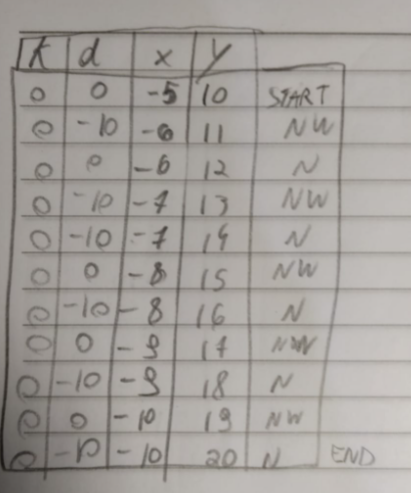 k d x y
0 0 -5 10 START
0 -10 -6 11 NW
0 0 -6 12 N
0 -10 -7 13 NW
0 -10 -7 14 N
0 0 -8 15 NW
0 -10 -8 16 N
0 0 -9 17 NW
0 -10 -9 18 N
0 0 -10 19 NW
0 -10 -10 20 N END